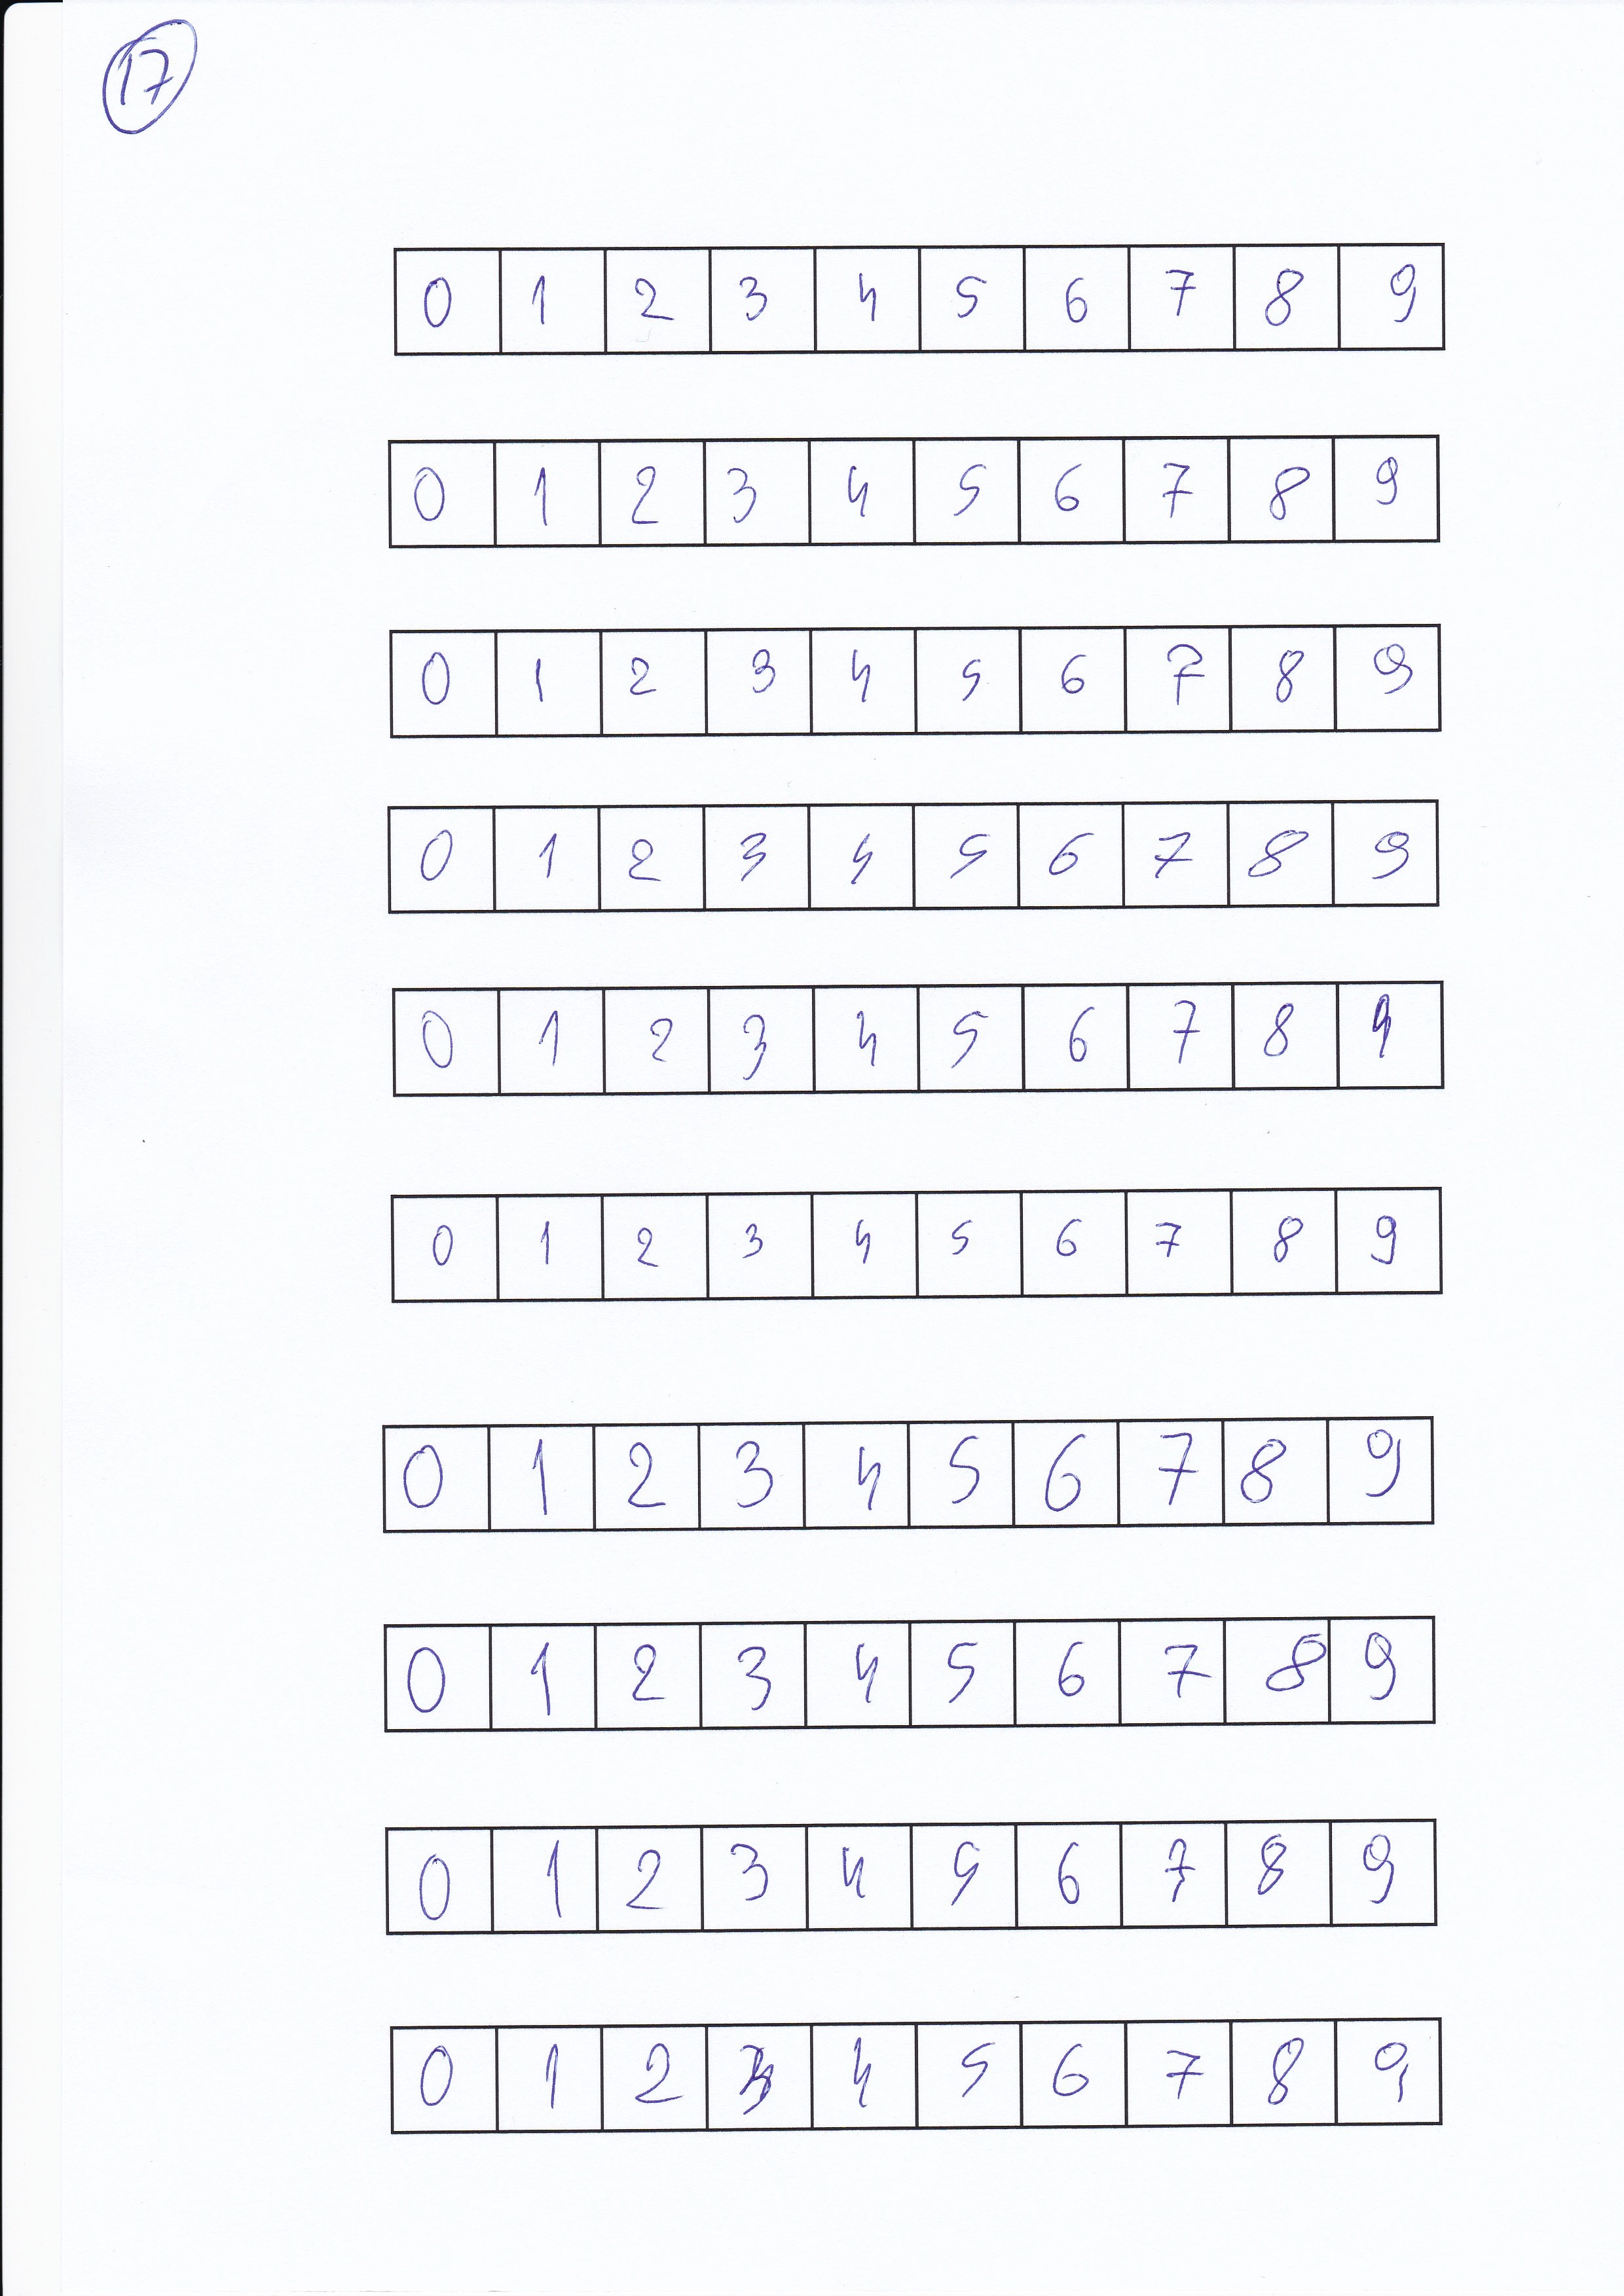 17
0 1 2 3 4 5 6 7 8 9
0 1 2 3 4 5 6 7 8 9
0 1 2 3 4 5 6 7 8 9
0 1 2 3 4 5 6 7 8 9
0 1 2 3 4 5 6 7 8 9
0 1 2 3 4 5 6 7 8 9
0 1 2 3 4 5 6 7 8 9
0 1 2 3 4 5 6 7 8 9
0 1 2 3 4 5 6 7 8 9
0 1 2 3 4 5 6 7 8 9